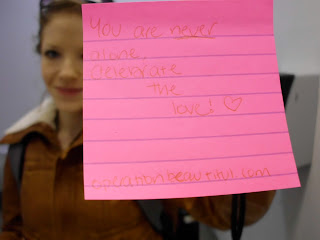 You are never
alone.
celebrate
the
love! ♡
operationbeautiful.com